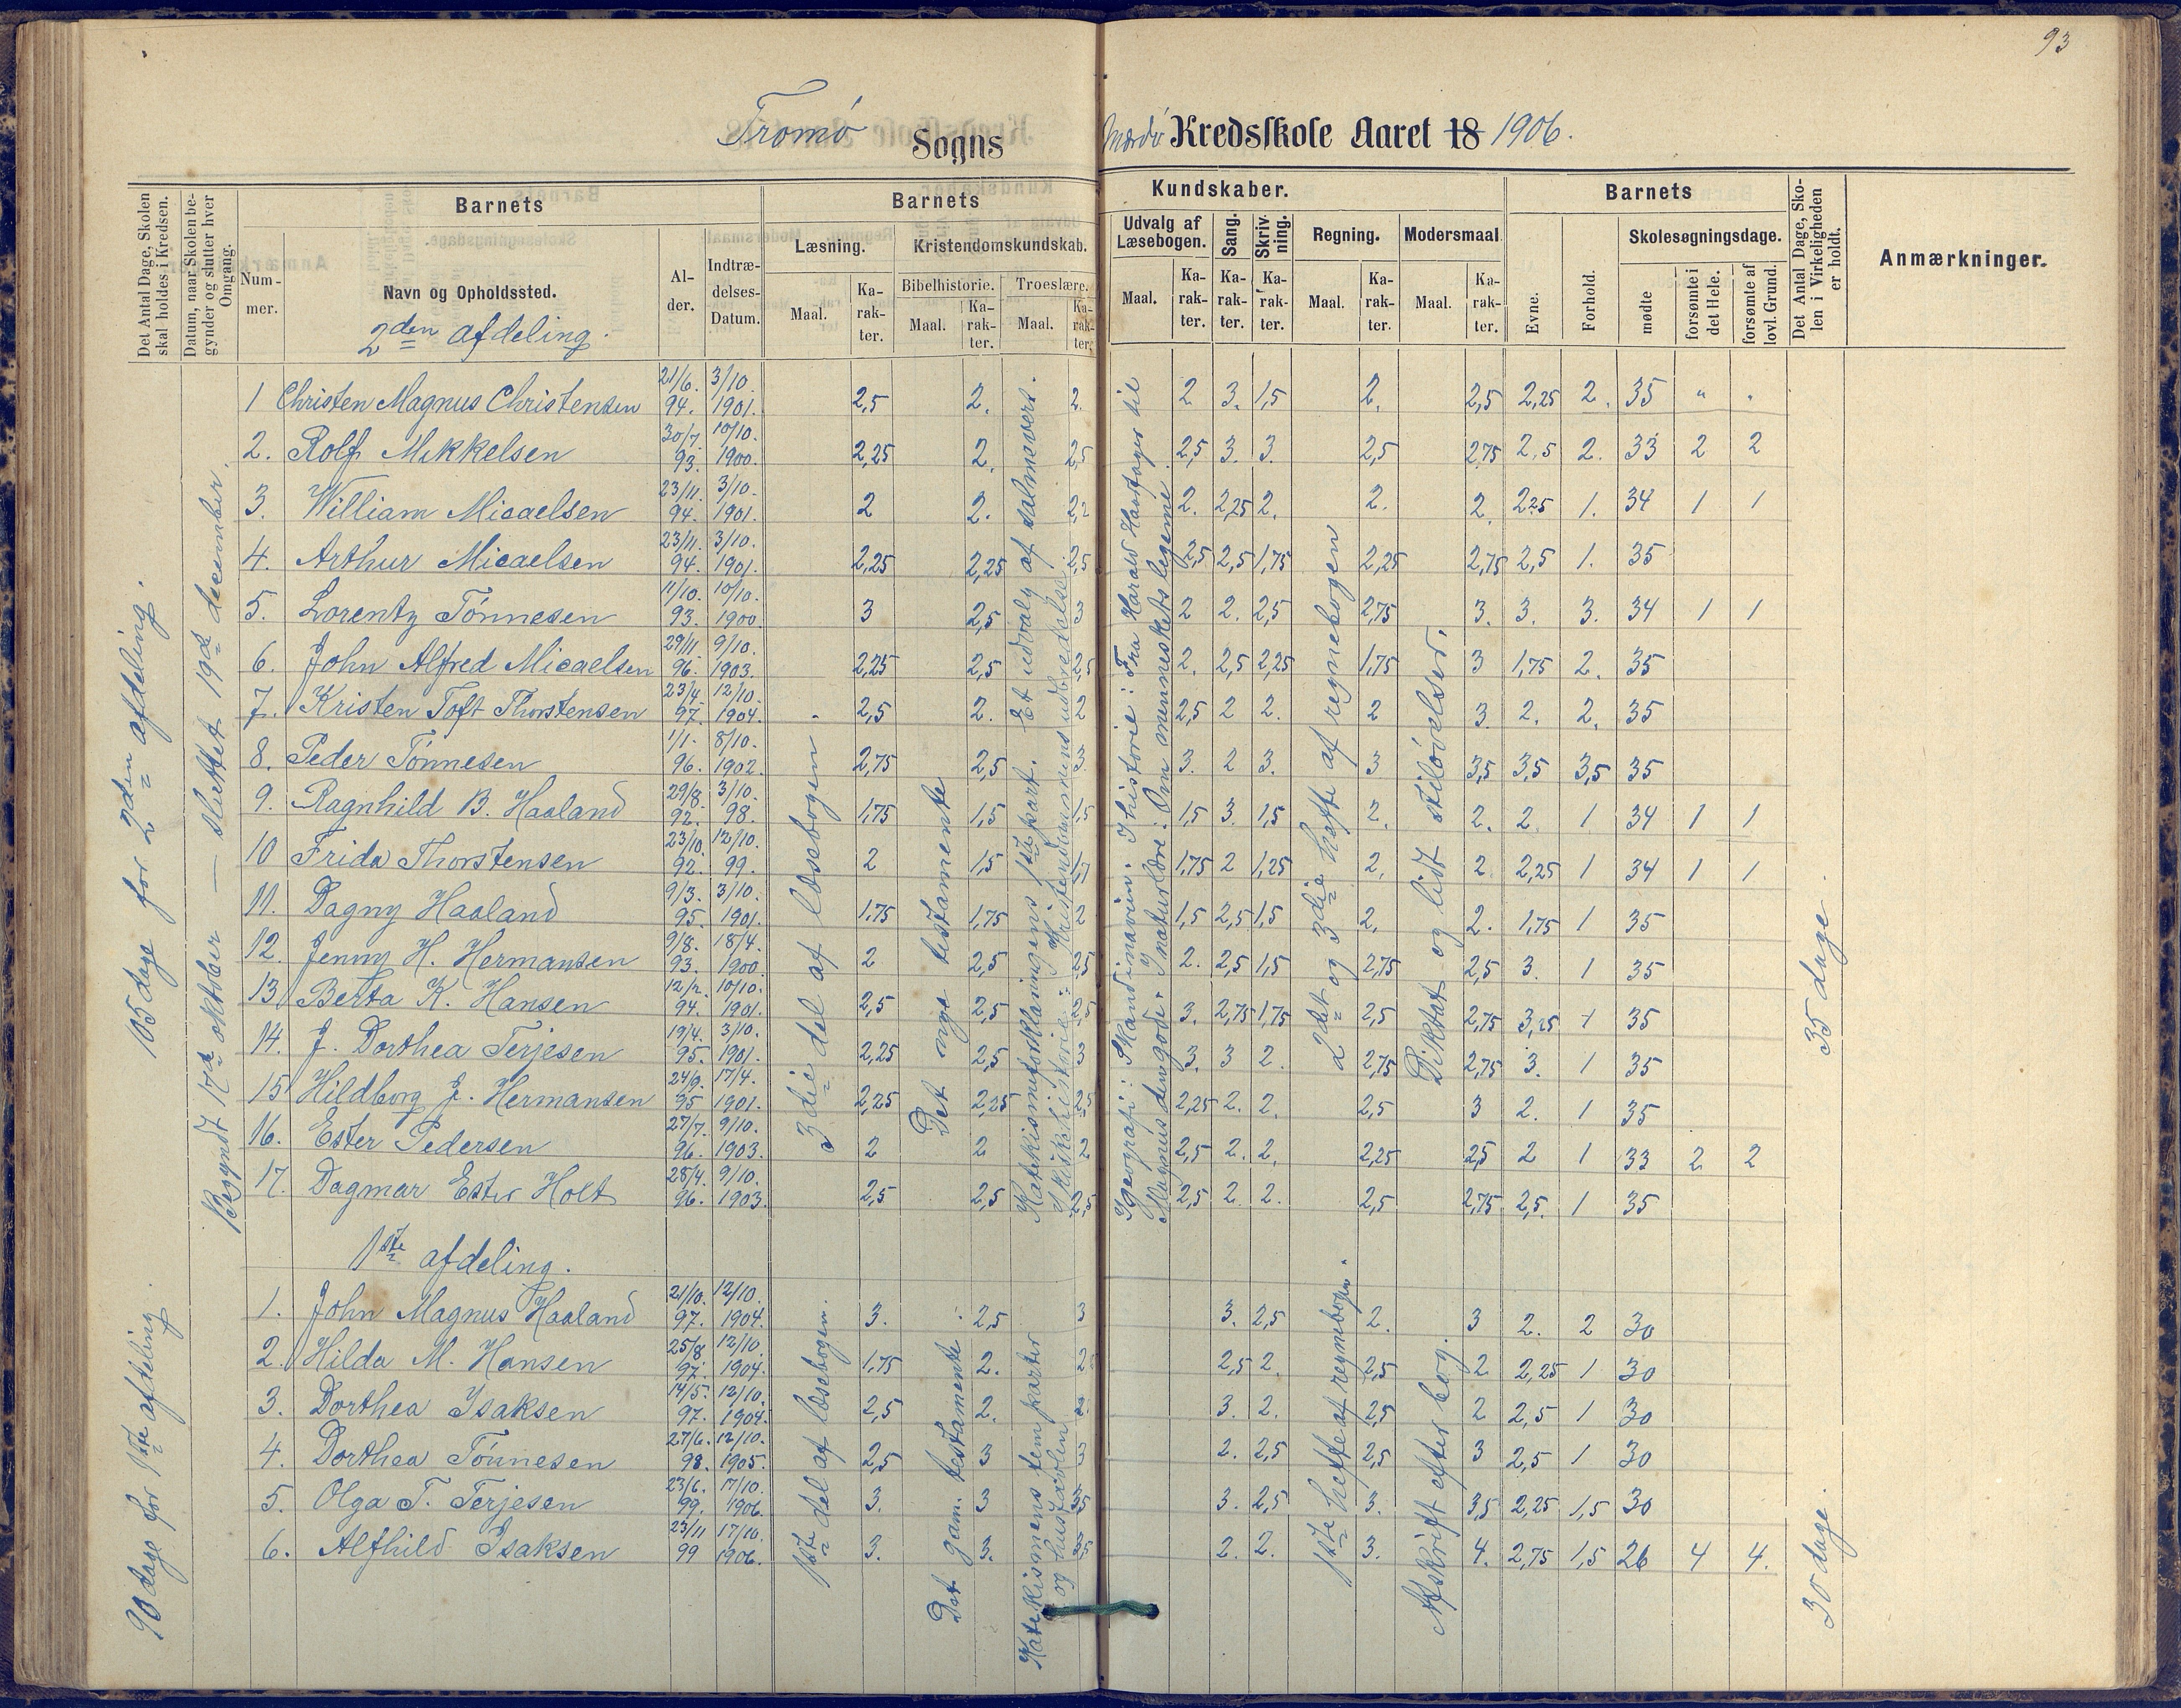 93
Tromø Sogns Mærdø Kredsskole Aaret 18 1906.
Det Antal Dage, Skolen skal holdes i Kredsen.
Datum, naar Skolen begynder og slutter hver Omgang.
Barnets
Nummer.
Navn og Opholdssted.
Alder.
Indtrædelses-Datum.
Barnets Kundskaber.
Læsning.
Maal.
Karakter.
Kristendomskundskab.
Bibelhistorie.
Maal.
Karakter.
Troeslære.
Maal.
Karakter.
Udvalg af Læsebogen.
Maal.
Karakter.
Sang.
Karakter.
Skrivning.
Karakter.
Regning.
Maal.
Karakter.
Modersmaal
Maal.
Karakter.
Barnets
Evne.
Forhold.
Skolesøgningsdage.
mødte
forsømte i det Hele.
forsømte af lovl. Grund.
Det Antal Dage, Skolen i Virkeligheden er holdt.
Anmærkninger.
2den afdeling.
105 dage for 2den afdeling.
Begyndt 17de oktober — sluttet 19de december.
3die del af læsebogen
Det nye testamente
Katekismeforklaringens 1ste part. Et udvalg af salmevers.
I kirkehistorie: Kristendommens udbredelse.
I geografi: Skandinavien. I historie: Fra Harald Haarfager til
Magnus den gode. I naturlære: Om menneskets legeme
2det og 3die hefte af regnebogen
Diktat og lidt stiløvelser.
35 dage.
1 Christen Magnus Christensen 21/6. 94. 3/10. 1901. 2,5 2. 2. 2 3. 1,5 2. 2,5 2,25 2. 35 " "
2. Rolf Mikkelsen 30/7. 93. 10/10. 1900. 2,25 2. 2,5 2,5 3. 3. 2,5 2,75 2,5 2. 33 2 2
3. William Micaelsen 23/11. 94. 3/10. 1901. 2 2. 2,2 2. 2,25 2. 2. 2. 2,25 1. 34 1 1
4. Arthur Micaelsen 23/11. 94. 3/10. 1901. 2,25 2,25 2,5 2,5 2,5 1,75 2,25 2,75 2,5 1. 35
5. Lorentz Tønnesen 11/10. 93. 10/10. 1900. 3 2,5 3 2 2. 2,5 2,75 3. 3. 3. 34 1 1
6. John Alfred Micaelsen 29/11 96. 9/10. 1903. 2,25 2,5 2,5 2. 2,5 2,25 1,75 3 1,75 2. 35
7. Kristen Toft Thorstensen 23/4 97. 12/10. 1904. 2,5 2. 2 2,5 2 2. 2 3. 2. 2. 35
8. Peder Tønnesen 1/1. 96. 8/10. 1902. 2,75 2,5 3. 3. 2 3. 3 3,5 3,5 3,5 35
9. Ragnhild B. Haaland 29/8. 92. 3/10. 98. 1,75 1,5 1,5 1,5 3. 1,5 2. 2. 2. 1 34 1 1
10 Frida Thorstensen 23/10 92. 12/10. 99. 2 1,5 1,7 1,75 2 1,25 2. 2 2,25 1 34 1 1
11. Dagny Haaland 9/3. 95. 3/10. 1901. 1,75 1,75 2 1,5 2,5 1,5 2. 2. 1,75 1 35
12. Jenny H. Hermansen 9/8. 93. 18/4. 1900. 2 2,5 2,5 2. 2,5 1,5 2,75 2,5 3. 1 35
13 Berta K. Hansen 12/2. 94. 10/10. 1901. 2,5 2,5 2,5 3. 2,75 1,75 2,5 2,75 3,25 1 35
14. J. Dorthea Terjesen 19/4. 95. 3/10. 1901. 2,25 2,5 3 3. 3 2. 2,75 2,75 3. 1 35
15 Hildborg J. Hermansen 24/9. 95 17/4. 1901. 2,25 2,25 2,5 2,25 2. 2. 2,5 3 2. 1 35
16. Ester Pedersen 27/7. 96. 9/10. 1903. 2 2 2 2,5 2. 2. 2,25 2,5 2 1 33 2 2
17. Dagmar Ester Holt 28/4. 96. 9/10. 1903. 2,5 2,5 2,5 2,5 2. 2. 2,5 2,75 2,5. 1 35
1ste afdeling.
90 dage for 1ste afdeling.
1ste del af læsebogen.
Det gam. testamente
Katekismens fem parter
og hustavlen
1ste hefte af regnebogen.
Afskrift efter bog.
30 dage.
1. John Magnus Haaland 21/10. 97. 12/10. 1904. 3. 2,5 3 3. 2,5 2. 3 2. 2 30
2. Hilda M. Hansen 25/8 97. 12/10. 1904. 1,75 2. 2,5 2. 2,5 2 2,25 1 30
3. Dorthea Isaksen 14/5. 97. 12/10. 1904. 2,5 2. 3. 2. 2,5 2 2,5 1 30
4. Dorthea Tønnesen 27/6. 98. 12/10. 1905. 2,5 3 3 2. 2,5 2,5 3 2,5 1 30
5. Olga T. Terjesen 23/6. 99. 17/10. 1906. 3. 3 3. 2,5 3. 3,5 2,25 1,5 30
6. Alfhild Isaksen 23/11 99 17/10. 1906. 3. 3. 2. 2. 3. 4. 2,75 1,5 26 4 4.